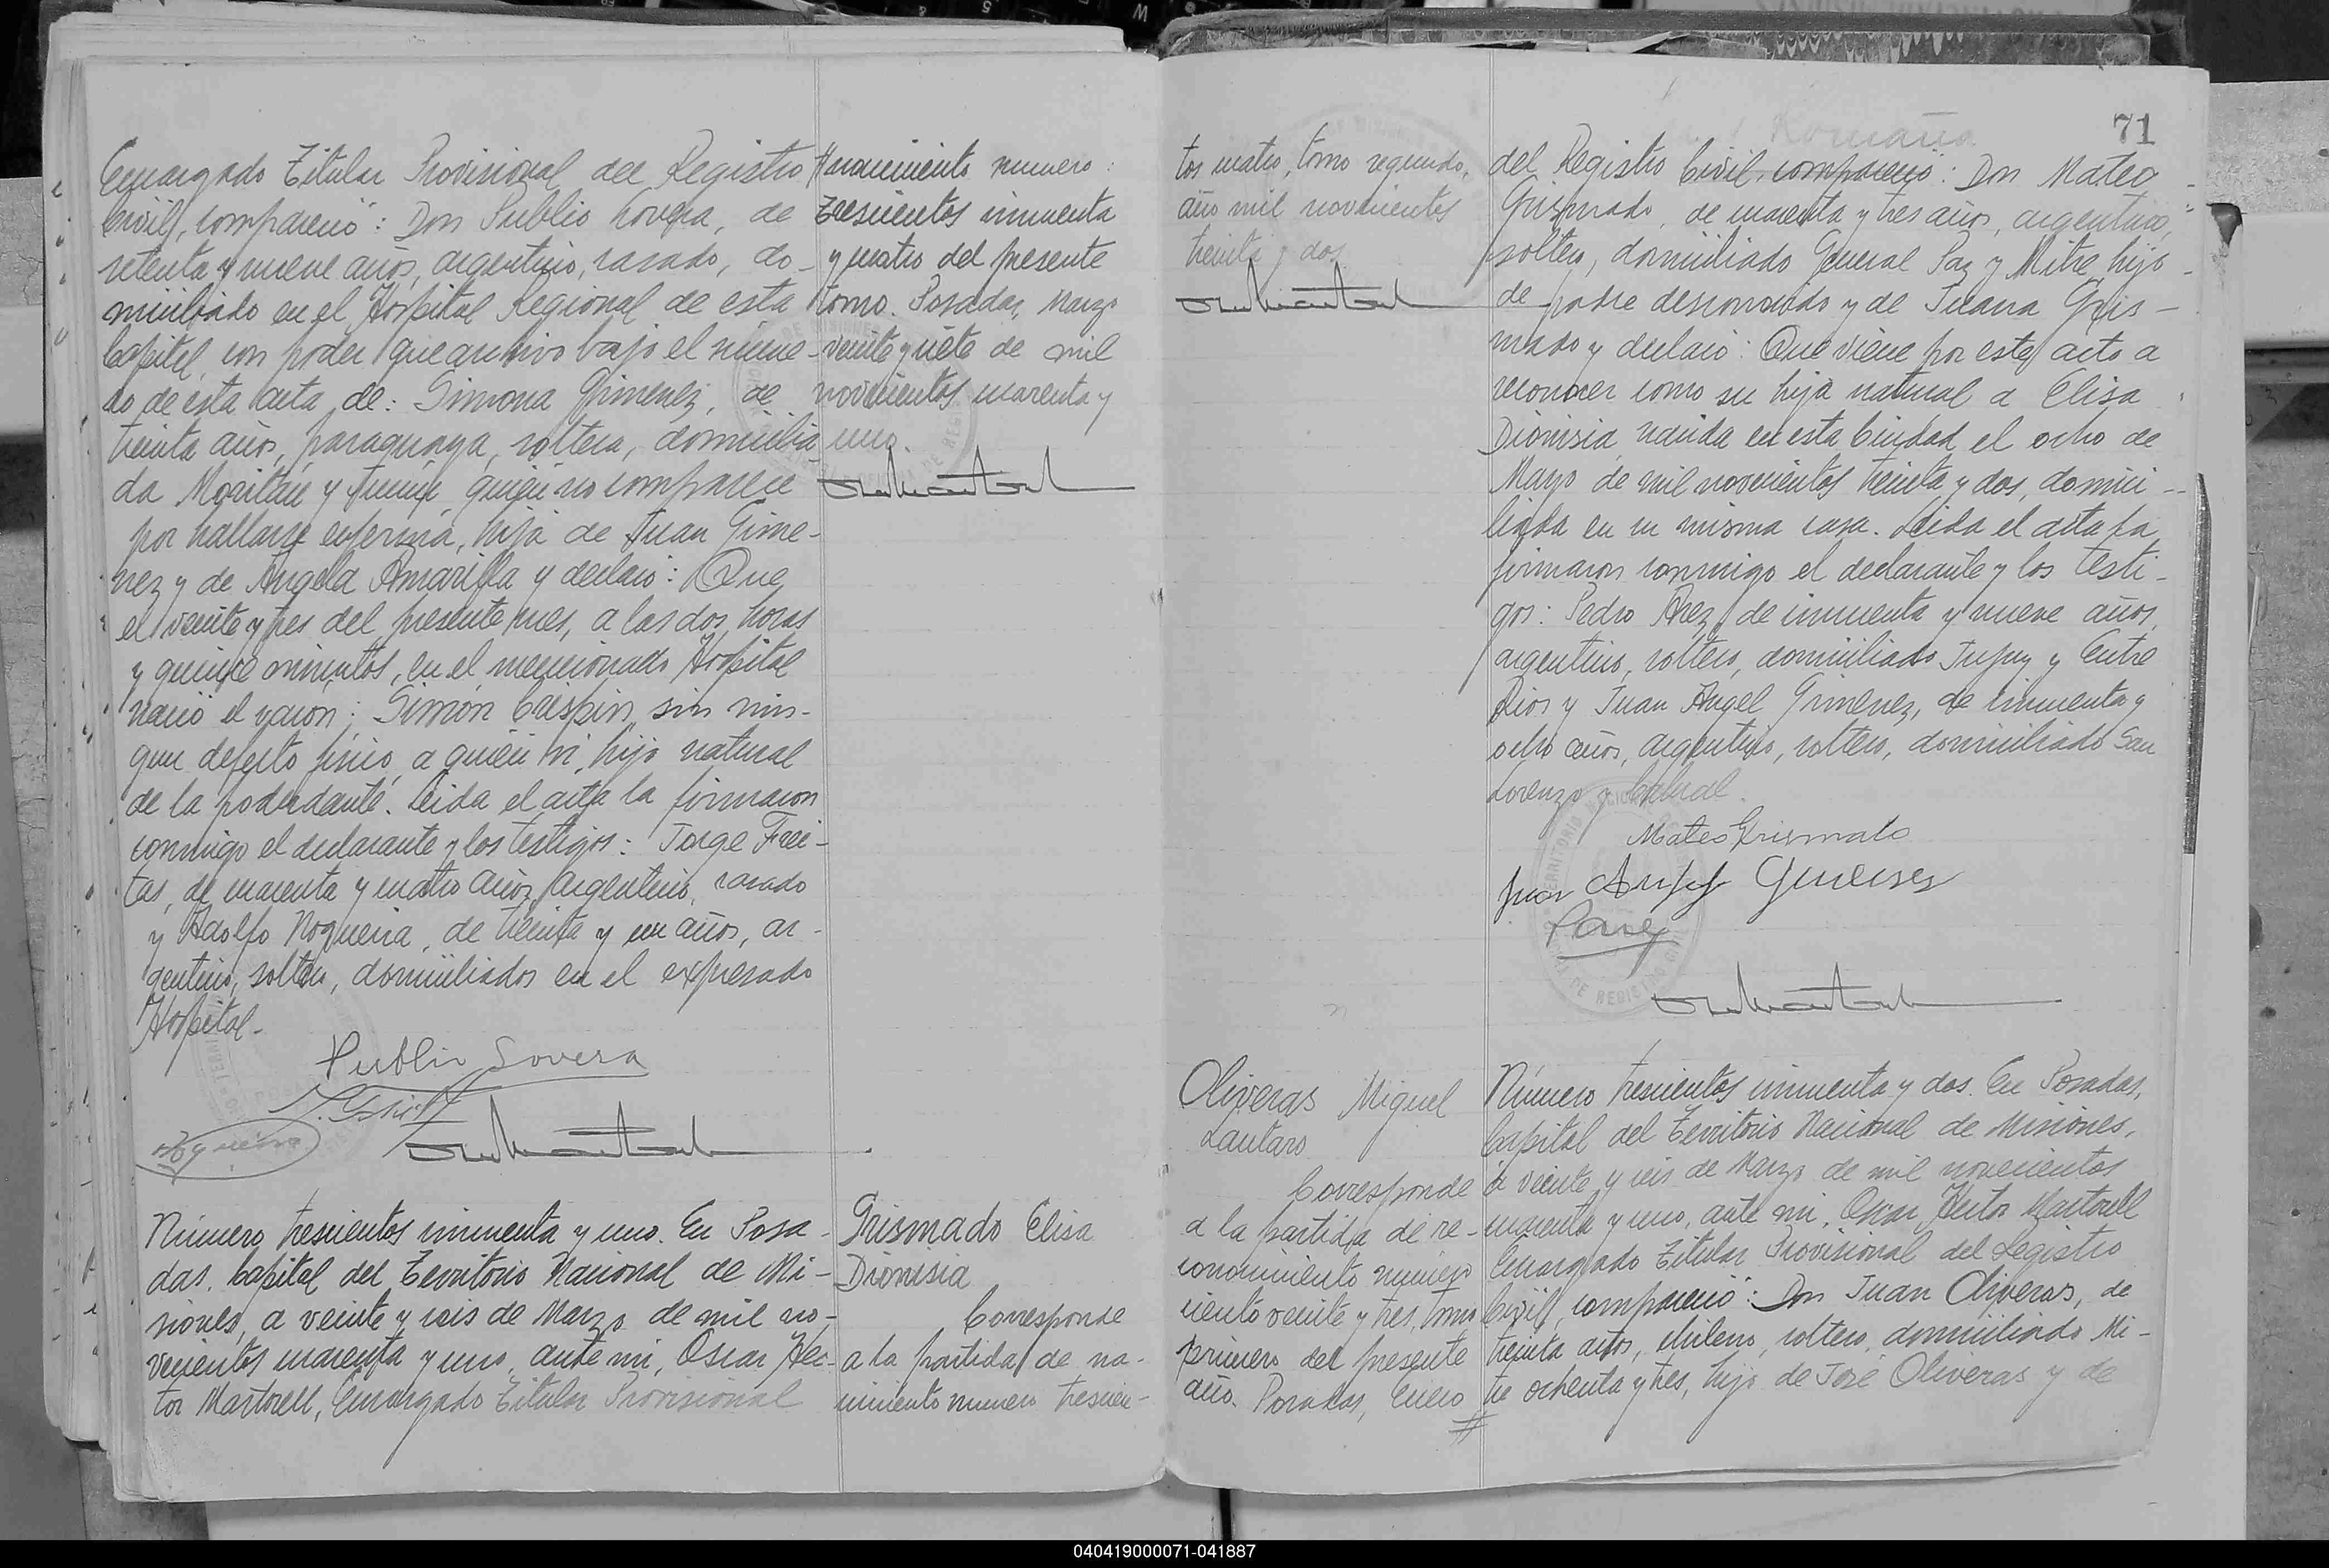 Encargado Titular Provisional del Registro
Civil, compareció: Don Publio Lovera, de
setenta y nueve años, argentino, casado, do-
miciliado en el Hospital Regional de esta
Capital, con poder que archivo bajo el núme-
ro de esta acta, de: Simona Gimenez, de
treinta años, paraguaya, soltera, domicilia
da Moritán y Junin, quién no comparece
por hallarse enferma, hija de Juan Gime-
nez y de Angela Amarilla y declaró: Que
el veinte y tres del presente mes, a las dos horas
y quince minutos, en el mencionado Hospital
nació el varón; Simón Crispin, sin nin-
gun defecto fisico, a quién vi, hijo natural
de la poderdante. Leida el acta la firmaron
conmigo el declarante y los testigos: Jorge Frei-
tas, de cuarenta y cuatro años, argentino, casado
y Adolfo Nogueira, de treinta y un años, ar-
gentino, soltero, domiciliados en el expresado
Hospital.
Publio Lovera
Nogueira
#nocimiento numero:
Trescientos cincuenta
y cuatro del presente
tomo. Posadas, Marzo
veinte y siete de mil
novecientos cuarenta y
uno.
Número trescientos cincuenta y uno. En Posa-
das, Capital del Territorio Nacional de Mi-
siones, a veinte y seis de Marzo de mil no-
vecientos cuarenta y uno, ante mi, Oscar Hec-
tor Martorell, Encargado Titular Provisional
Grismado Elisa
Dionisia
Corresponde
a la partida de na-
cimiento numero trescien-
71
tos cuatro, tomo segundo,
año mil novecientos
treinta y dos
del Registro Civil, compareció: Don Mateo
Grismado, de cuarenta y tres años, argentino,
soltero, domiciliado General Paz y Mitre, hijo
de padre desconocido y de Juana Gris-
mado y declaró: Que viene por este acto a
reconocer como su hija natural a Elisa
Dionisia, nacida en esta Ciudad el ocho de
Mayo de mil novecientos treinta y dos, domici-
liada en su misma casa. Leida el acta la
firmaron conmigo el declarante y los testi-
gos: Pedro Arez, de cincuenta y nueve años,
argentino, soltero, domiciliado Jujuy y Entre
Rios y Juan Angel Gimenez, de cincuenta y
ocho años, argentino, soltero, domiciliado San
Lorenzo y Cabral.
Mateo Grismado
Juan Angel Gimenez
Oliveras Miguel
Lautaro
Corresponde
a la partida de re-
conocimiento número
ciento veinte y tres, tomo
primero del presente
año. Posadas, Enero
#
Número trescientos cincuenta y dos. En Posadas,
Capital del Territorio Nacional de Misiones,
a veinte y seis de Marzo de mil novecientos
cuarenta y uno, ante mi, Oscar Hector Martorell
Encargado Titular Provisional del Registro
Civil, compareció: Don Juan Oliveras, de
treinta años, chileno, soltero, domiciliado Mi-
tre ochenta y tres, hijo de José Oliveras y de
040419000071-041887